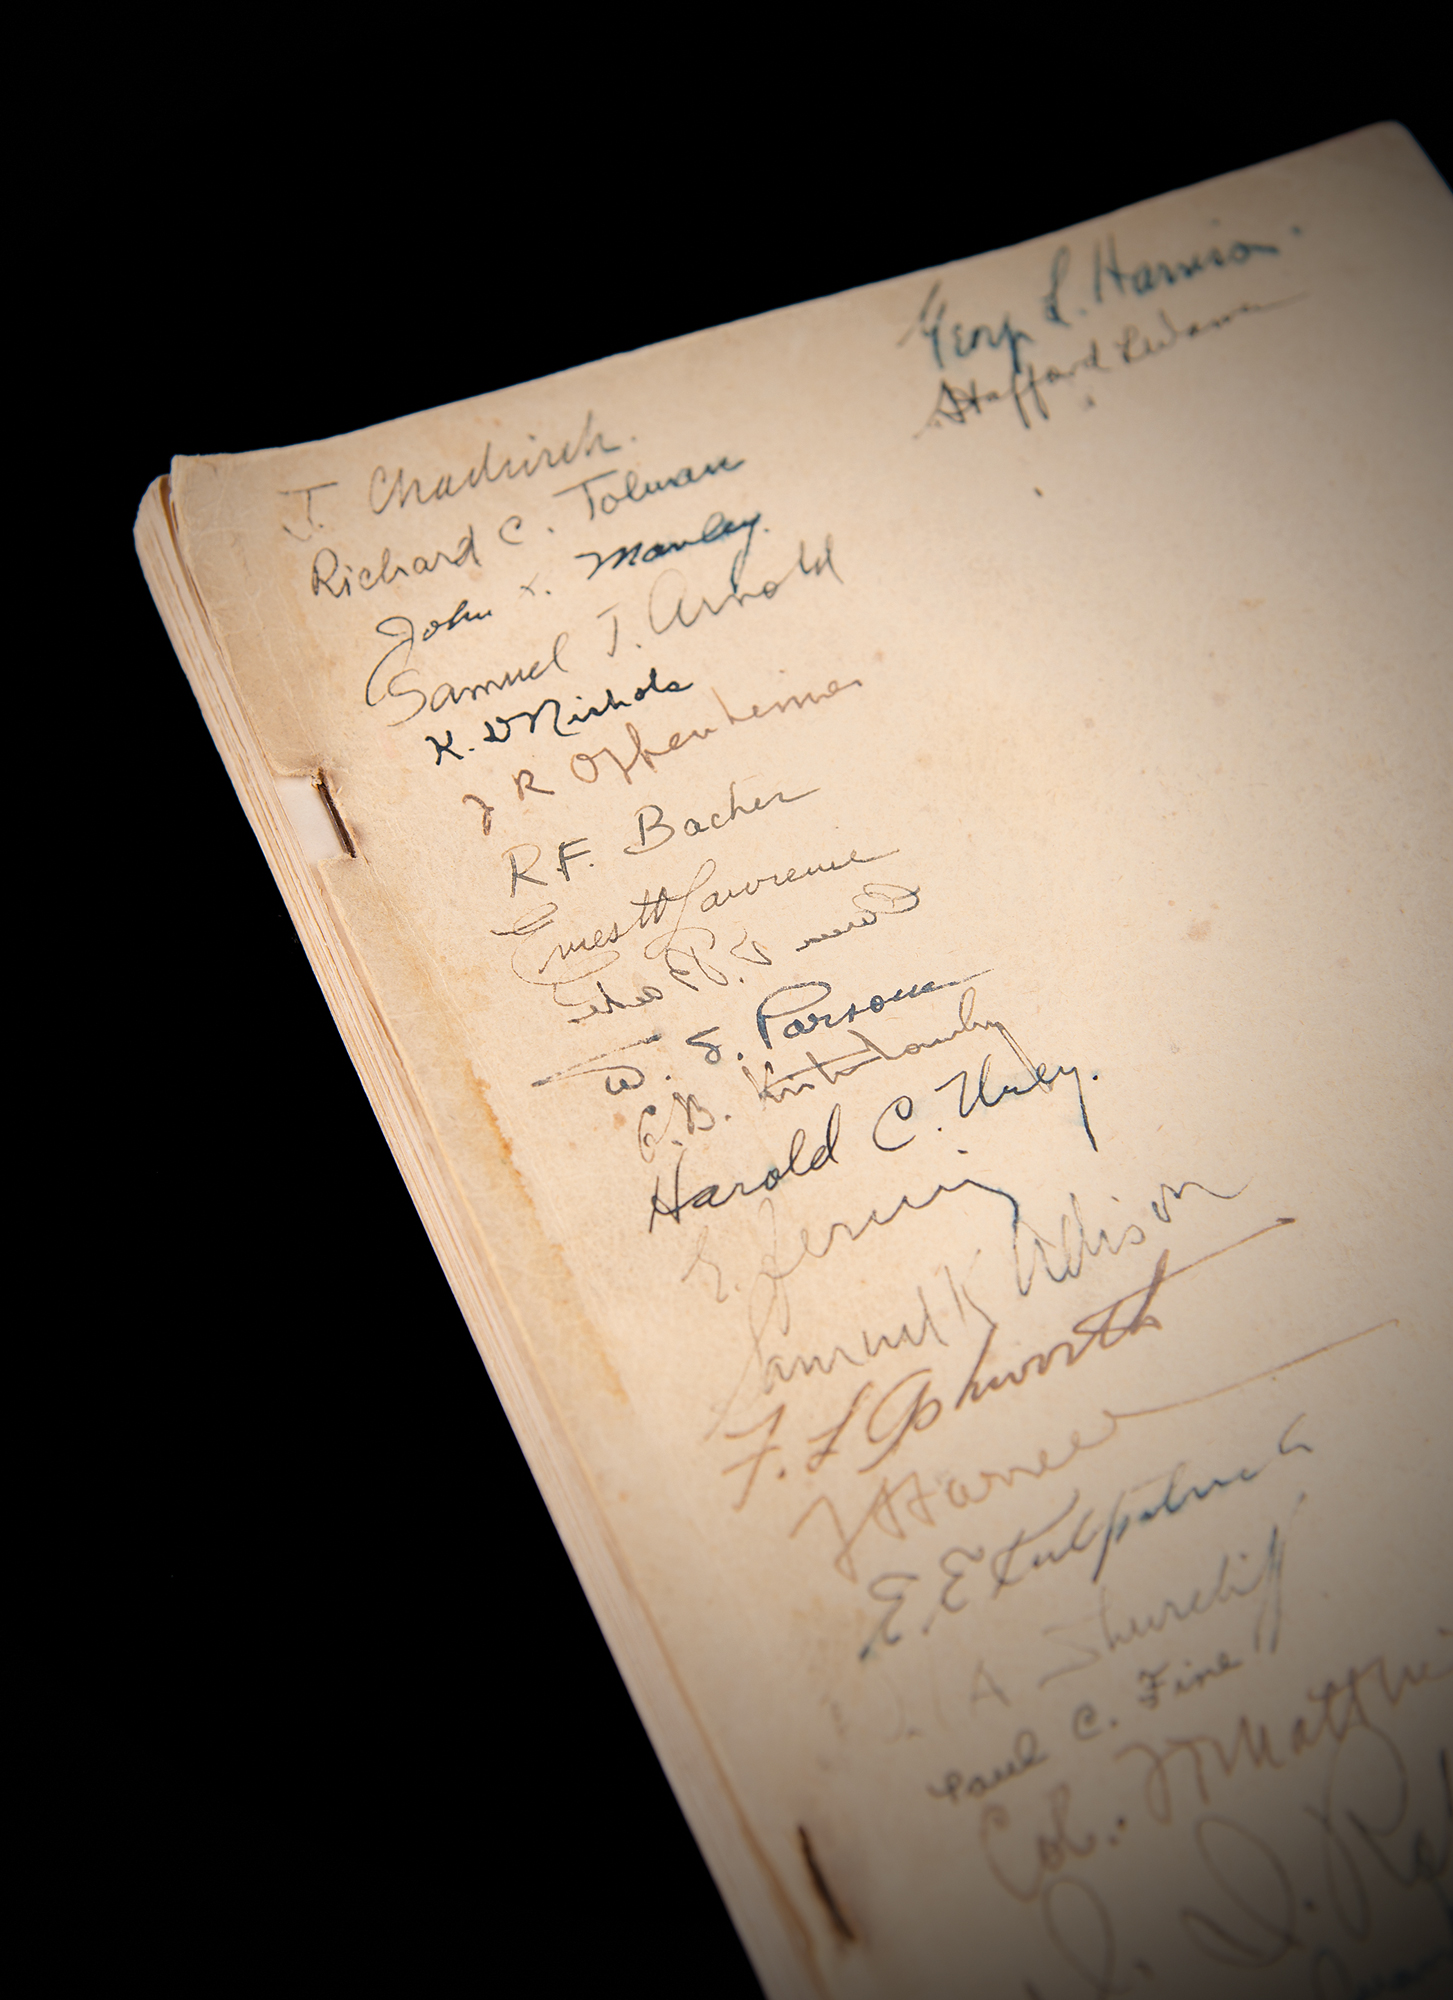 George L. Harrison
Stafford L. Warren
J. Chadwick.
Richard C. Tolman
John H. Manley.
Samuel T. Arnold
K. D Nichols
J R Oppenheimer
R.F. Bacher
Ernest O Lawrence
W. S. Parsons
G.B. Kistiakowsky
Harold C. Urey.
E. Fermi
Samuel K Allison
F. L Ashworth
E. E Kirkpatrick
A Shurcliff
Paul C. Fine
Col. Matthias
I. I. Rabi